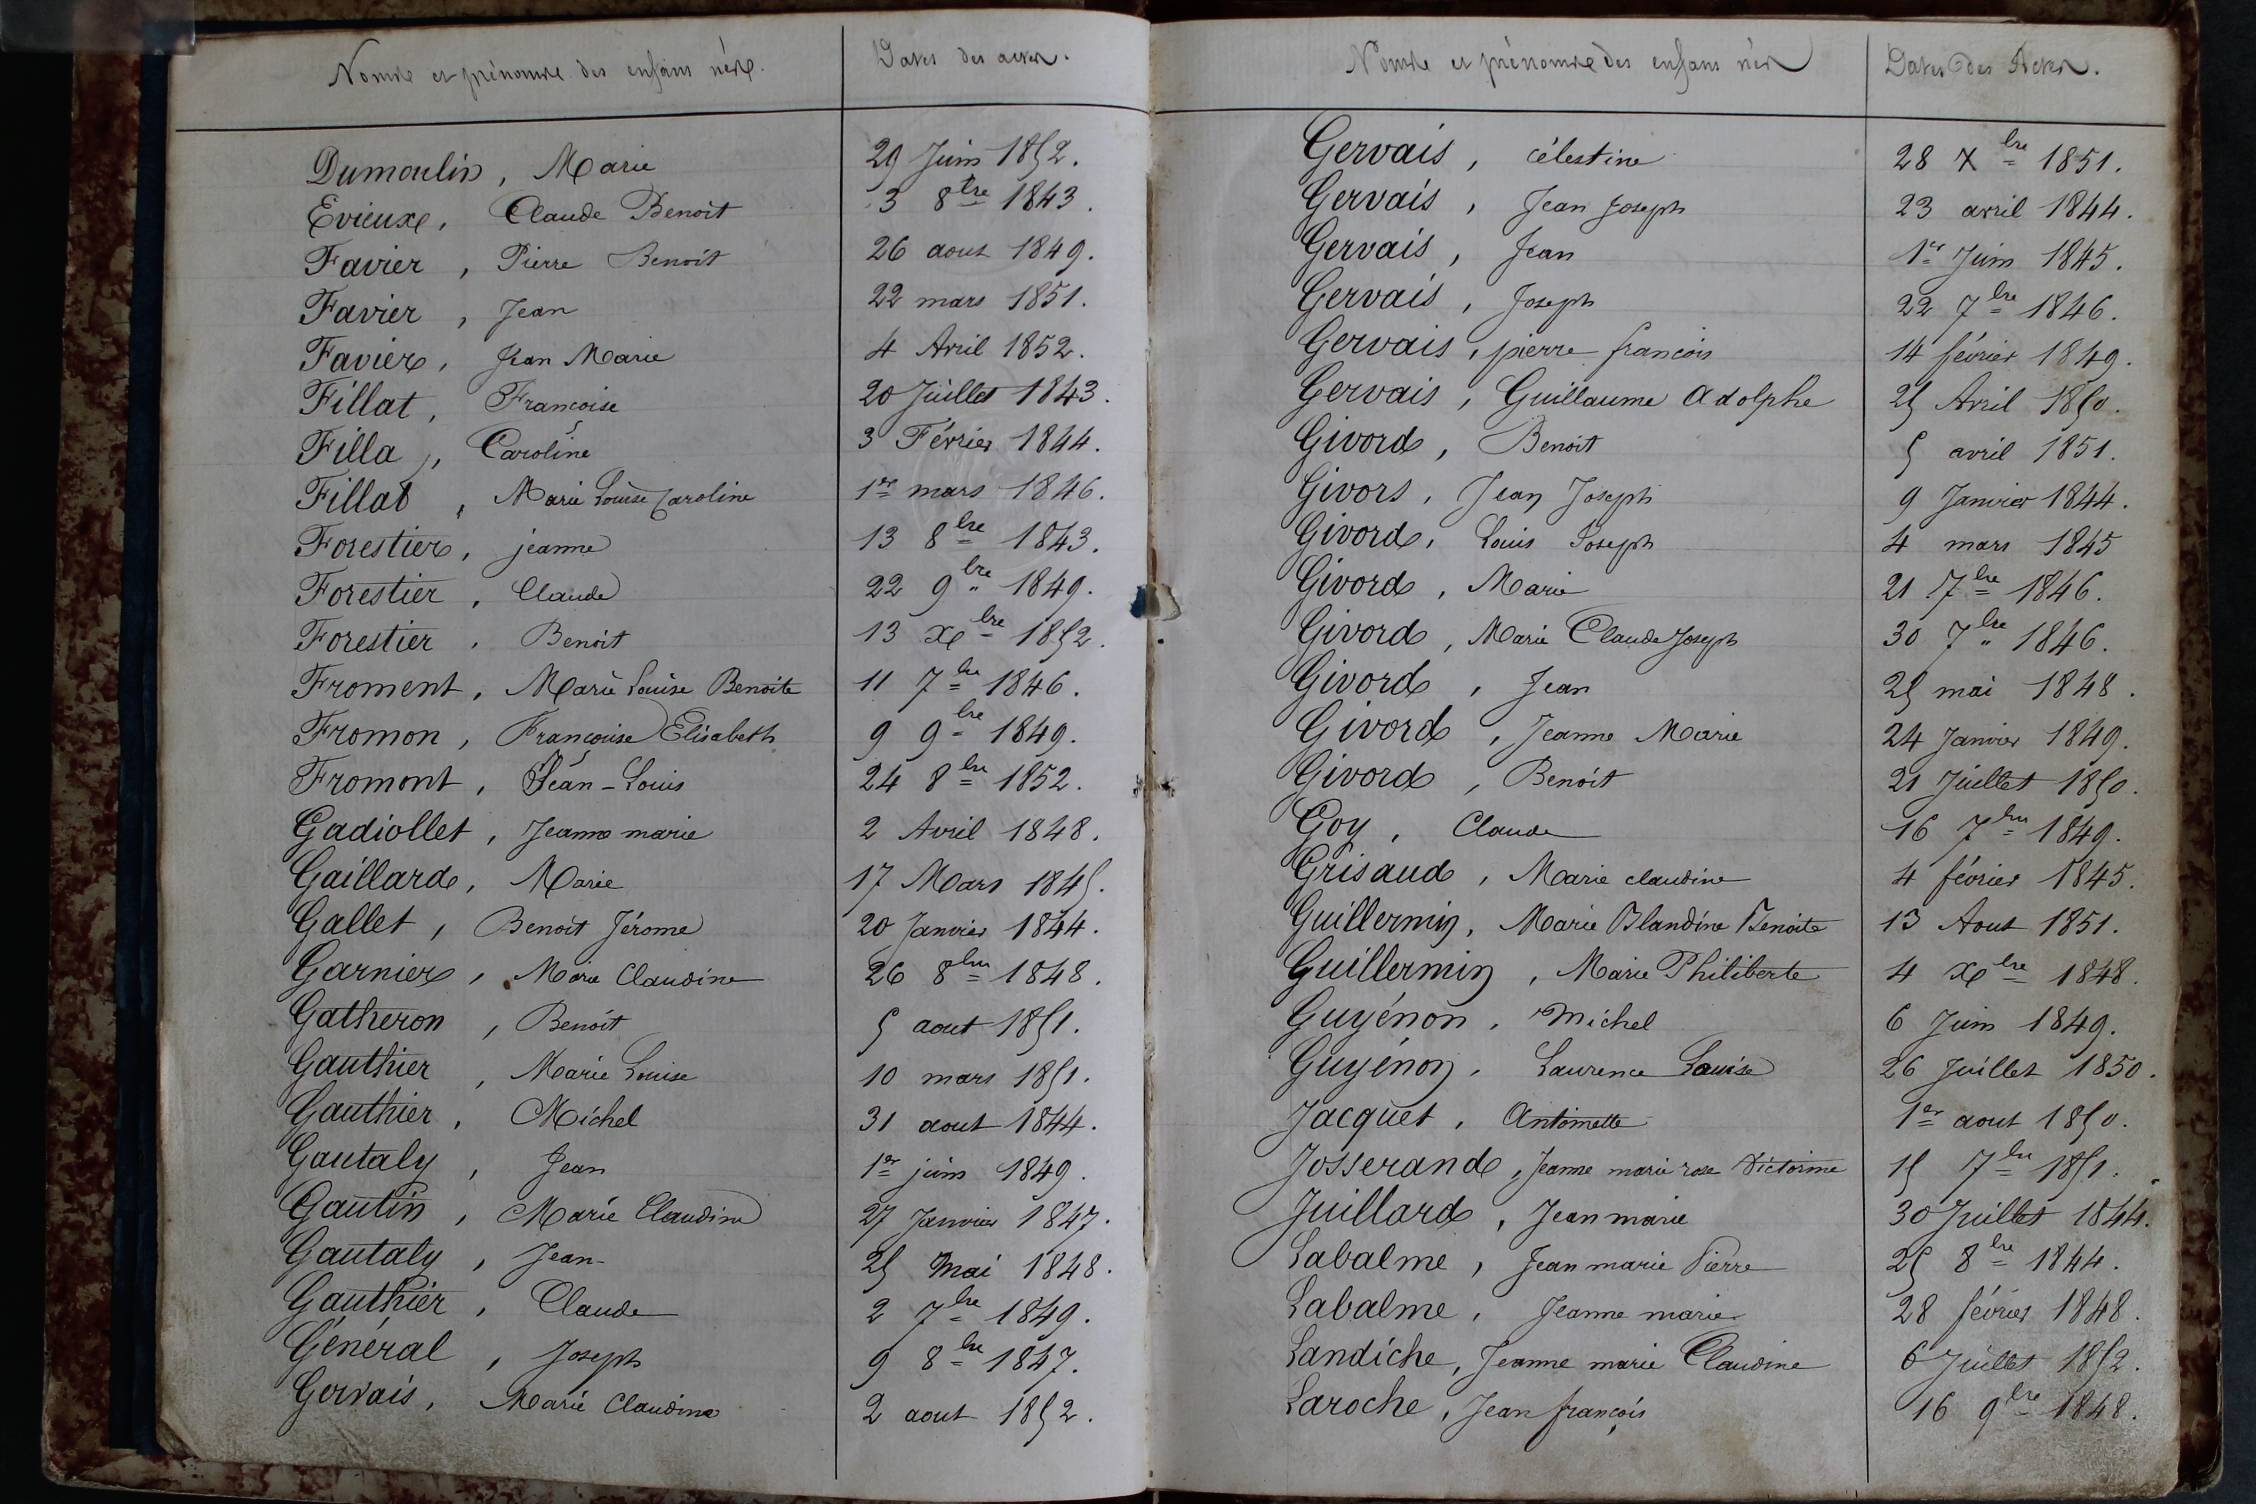 Noms et prénoms des enfans nés. Dates des actes.
Dumoulin, Marie 29 Juin 1852.
Evieux, Claude Benoit 3 8bre 1843.
Favier, Pierre Benoit 26 aout 1849.
Favier, Jean 22 mars 1851.
Favier, Jean Marie 4 Avril 1852.
Fillat, Françoise 20 Juillet 1843.
Filla, Caroline 3 Février 1844.
Fillat, Marie Louise Caroline 1er mars 1846.
Forestier, jeanne 13 8bre 1843.
Forestier, Claude 22 9bre 1849.
Forestier, Benoit 13 xbre 1852.
Froment, Marie Louise Benoite 11 7bre 1846.
Fromon, Françoise Elisabeth 9 9bre 1849.
Fromont, Jean-Louis 24 8bre 1852.
Gadiollet, Jeanne marie 2 Avril 1848.
Gaillard, Marie 17 Mars 1845.
Gallet, Benoit Jérome 20 Janvier 1844.
Garnier, Marie Claudine 26 8bre 1848.
Gatheron, Benoit 5 aout 1851.
Gauthier, Marie Louise 10 mars 1851.
Gauthier, Michel 31 aout 1844.
Gautaly, Jean 1er juin 1849.
Gautin, Marie Claudine 27 Janvier 1847.
Gautaly, Jean 25 Mai 1848.
Gauthier, Claude 2 7bre 1849.
Général, Joseph 9 8bre 1847.
Gervais, Marie Claudine 2 aout 1852.
Noms et prénoms des enfans nés Dates des Actes.
Gervais, célestine 28 Xbre 1851.
Gervais, Jean Joseph 23 avril 1844.
Gervais, Jean 1er Juin 1845.
Gervais, Joseph 22 7bre 1846.
Gervais, pierre françois 14 février 1849.
Gervais, Guillaume adolphe 25 Avril 1850.
Givord, Benoit 5 avril 1851.
Givors, Jean Joseph 9 Janvier 1844.
Givord, Louis Joseph 4 mars 1845
Givord, Marie 21 7bre 1846.
Givord, Marie Claude Joseph 30 7bre 1846.
Givord, Jean 25 mai 1848.
Givord, Jeanne Marie 24 Janvier 1849.
Givord, Benoit 21 Juillet 1850.
Goy, Claude 16 7bre 1849.
Grisaud, Marie claudine 4 février 1845.
Guillermin, Marie Blandine Benoite 13 Aout 1851.
Guillermin, Marie Philiberte 4 xbre 1848.
Guyénon, Michel 6 Juin 1849.
Guyénon, Laurence Louise 26 Juillet 1850.
Jacquet, Antoinette 1er aout 1850.
Josserand, Jeanne marie rose Victorine 15 7bre 1851.
Juillard, Jean marie 30 Juillet 1844.
Labalme, Jean marie Pierre 25 8bre 1844.
Labalme, Jeanne marie 28 février 1848.
Landiche, Jeanne marie Claudine 6 Juillet 1852.
Laroche, Jean françois 16 9bre 1848.